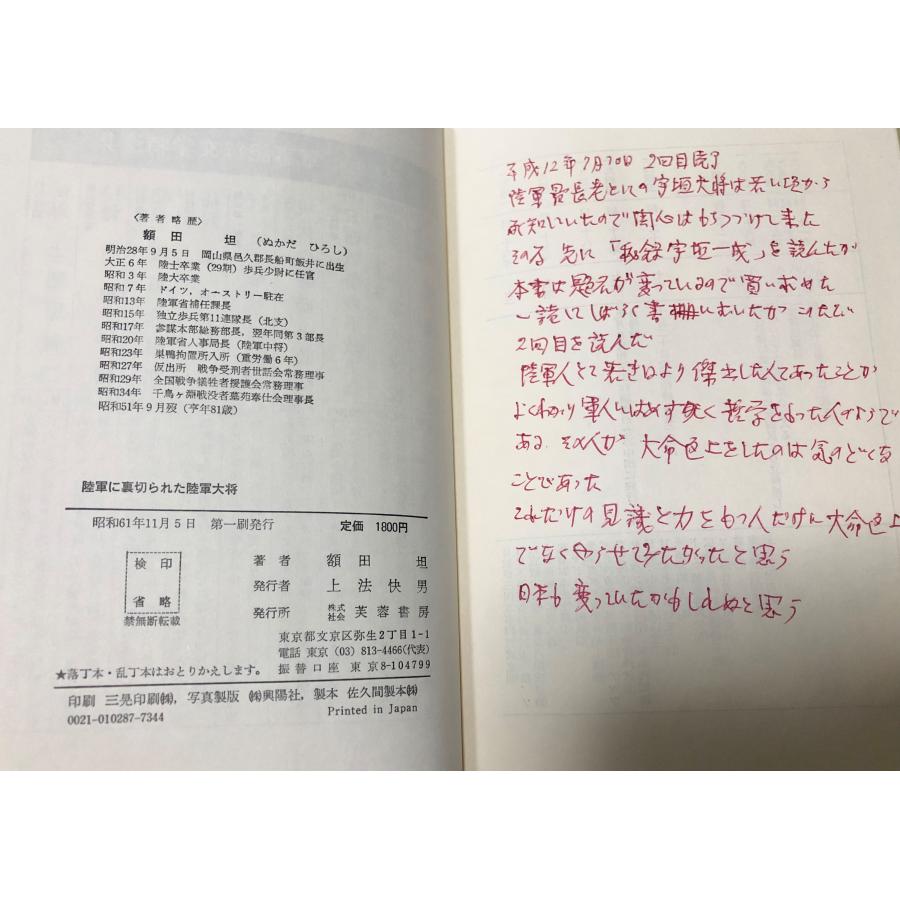 〈著者略歴〉
額田 坦 (ぬかだ ひろし)
明治28年9月5日 岡山県邑久郡長船町飯井に出生
大正6年 陸士卒業(29期)歩兵少尉に任官
昭和3年 陸大卒業
昭和7年 ドイツ,オーストリー駐在
昭和13年 陸軍省補任課長
昭和15年 独立歩兵第11連隊長(北支)
昭和17年 参謀本部総務部長,翌年同第3部長
昭和20年 陸軍省人事局長(陸軍中将)
昭和23年 巣鴨拘置所入所(重労働6年)
昭和27年 仮出所 戦争受刑者世話会常務理事
昭和29年 全国戦争犠牲者援護会常務理事
昭和34年 千鳥ヶ淵戦没者墓苑奉仕会理事長
昭和51年9月歿(亨年81歳)
陸軍に裏切られた陸軍大将
昭和61年11月5日 第一刷発行 定価 1800円
検印
省略
禁無断転載
著者 額田 坦
発行者 上法快男
発行所 株式会社 芙蓉書房
東京都文京区弥生2丁目1-1
電話 東京(03)813-4466(代表)
振替口座 東京8-104799
★落丁本・乱丁本はおとりかえします。
印刷 三晃印刷㈱,写真製版 ㈱興陽社,製本 佐久間製本㈱
0021-010287-7344
Printed in Japan
平成12年7月10日 2回目完了
陸軍最長老としての宇垣大将は若い頃から
承知していたので関心はもちつづけて来た
その為 先に「秘録宇垣一成」を読んだが
本書は題名が変っているので買い求めた
一読してしばらく書棚に
2回目を読んだ
陸軍人として若き日より傑出した人であったことが
よくわかり軍人にはめずらしく哲学をもった人のようで
ある.その人が 大命
をしたのは気のどくな
ことであった
これだけの見識と力をもつ人だけに大命
でなくやらせてみたかったと思う
日本も変っていたかもしれぬと思う